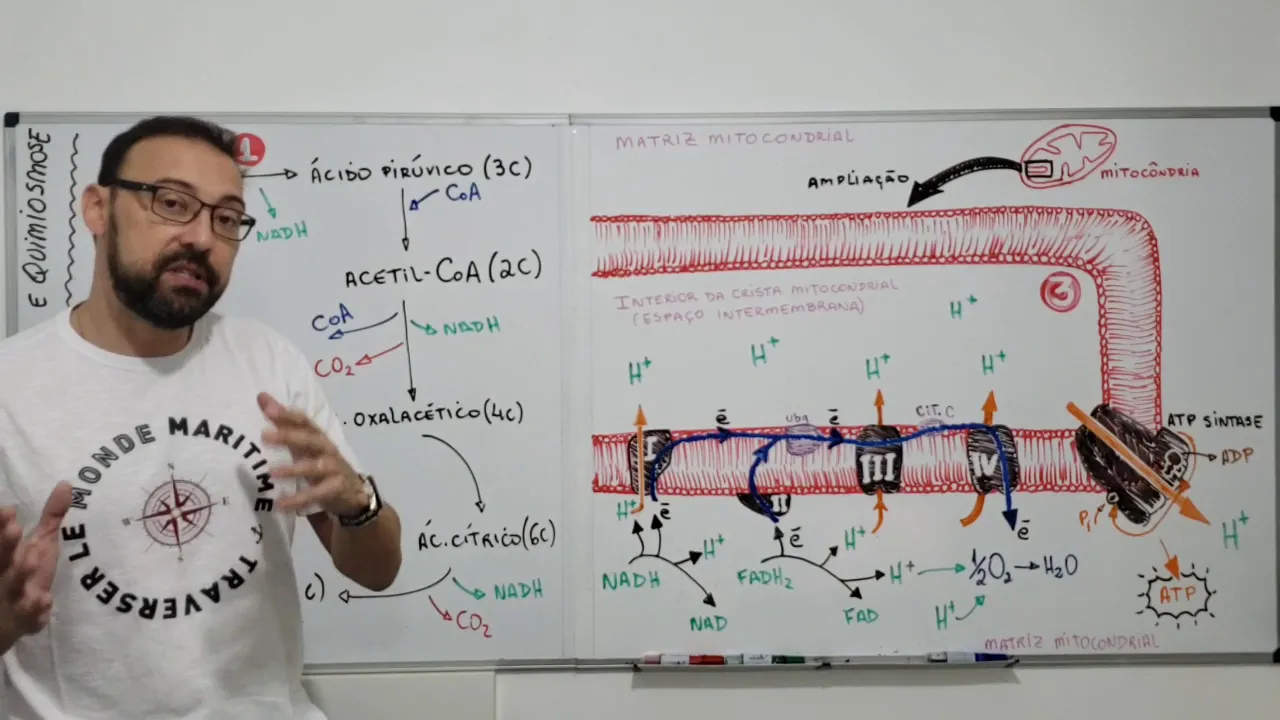 E QUIMIOSMOSE
1
ÁCIDO PIRÚVICO (3C)
CoA
NADH
ACETIL-CoA (2C)
CoA
NADH
CO2
. OXALACÉTICO (4C)
ÁC. CÍTRICO (6C)
C)
NADH
CO2
LE MONDE MARITIME & TRAVERSER
N
W
E
S
MATRIZ MITOCONDRIAL
AMPLIAÇÃO
MITOCÔNDRIA
INTERIOR DA CRISTA MITOCONDRIAL
(ESPAÇO INTERMEMBRANA)
3
H+
H+
H+
H+
H+
ē
Ubq
ē
CIT. C
ATP SÍNTASE
I
III
IV
ADP
II
H+
ē
ē
Pi
ē
H+
NADH
H+
FADH2
H+
H+
½O2
H2O
ATP
NAD
FAD
H+
MATRIZ MITOCONDRIAL